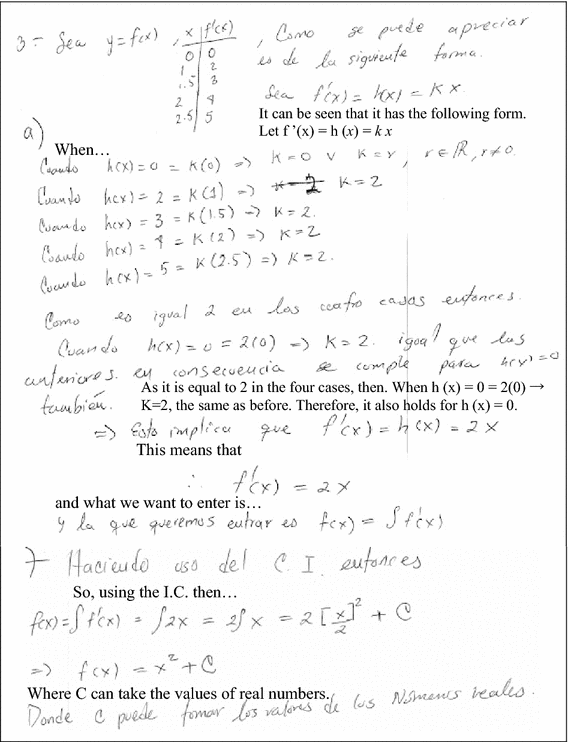 3- Sea y=f(x) , x | f'(x) , Como se puede apreciar
0 | 0 es de la siguiente forma.
1 | 2
1.5 | 3 Sea f'(x) = h(x) = K x
2 | 4 It can be seen that it has the following form.
2.5 | 5 Let f '(x) = h (x) = k x
a)
When…
Cuando h(x)=0 = K(0) => K=0 v K=r, r∈ℝ, r≠0.
Cuando h(x)= 2 = K(1) => K=2
Cuando h(x) = 3 = K(1.5) => K=2.
Cuando h(x) = 4 = K(2) => K=2
Cuando h(x) = 5 = K(2.5) => K=2.
Como es igual 2 en los cuatro casos entonces.
Cuando h(x)=0 = 2(0) => K=2. igual que las
anteriores. en consecuencia se cumple para h(x)=0
As it is equal to 2 in the four cases, then. When h (x) = 0 = 2(0) →
también. K=2, the same as before. Therefore, it also holds for h (x) = 0.
=> Esto implica que f'(x) = h(x) = 2x
This means that
∴ f'(x) = 2x
and what we want to enter is…
y la que queremos entrar es f(x) = ∫f'(x)
Haciendo uso del C.I. entonces
So, using the I.C. then…
f(x)=∫f'(x) = ∫2x = 2∫x = 2[x/2]² + C
=> f(x) = x² + C
Where C can take the values of real numbers.
Donde C puede tomar los valores de los Números reales.